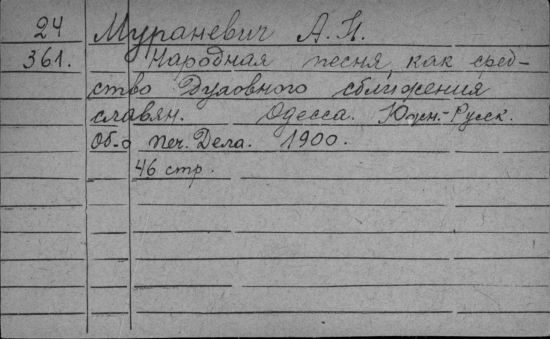 24 Мураневич А. П.
361. Народная песня, как сред-
ство духовного сближения
славян. Одесса. Южн.-Русск.
Об-о Печ. Дела. 1900.
46 стр.